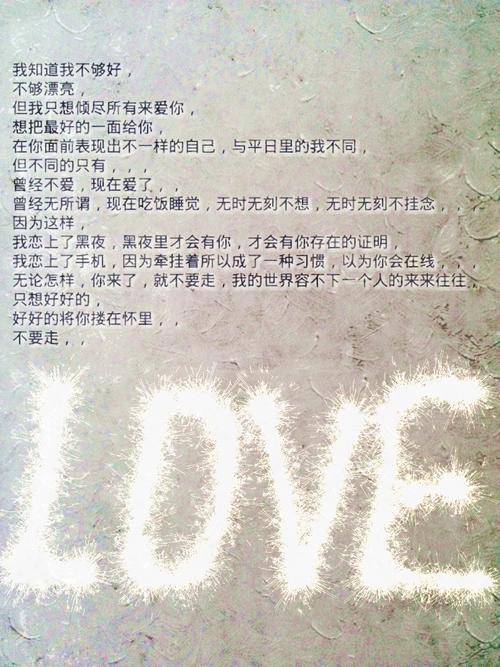 我知道我不够好，
不够漂亮，
但我只想倾尽所有来爱你，
想把最好的一面给你，
在你面前表现出不一样的自己，与平日里的我不同，
但不同的只有，，，
曾经不爱，现在爱了，，
曾经无所谓，现在吃饭睡觉，无时无刻不想，无时无刻不挂念，，
因为这样，
我恋上了黑夜，黑夜里才会有你，才会有你存在的证明，
我恋上了手机，因为牵挂着所以成了一种习惯，以为你会在线，，
无论怎样，你来了，就不要走，我的世界容不下一个人的来来往往，
只想好好的，
好好的将你搂在怀里，，
不要走，，
LOVE